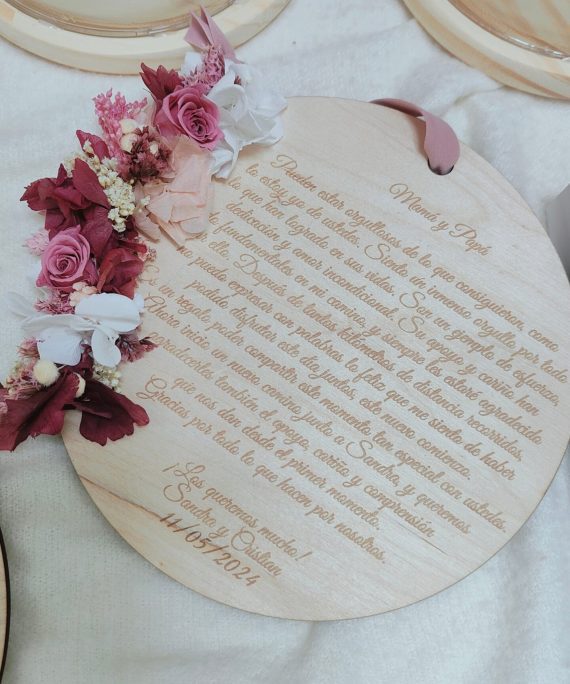 Mamá y Papá
Pueden estar orgullosos de lo que consiguieron, como
lo estoy yo de ustedes. Siento un inmenso orgullo por todo
lo que han logrado en sus vidas. Son un ejemplo de esfuerzo,
dedicación y amor incondicional. Su apoyo y cariño han
fundamentales en mi camino, y siempre les estaré agradecido
ello. Después de tantos kilómetros de distancia recorridos,
puedo expresar con palabras lo feliz que me siento de haber
podido disfrutar este día juntos, este nuevo comienzo.
un regalo poder compartir este momento tan especial con ustedes.
Ahora, inicio un nuevo camino junto a Sandra, y queremos
también el apoyo, cariño y comprensión
que nos dan desde el primer momento.
Gracias por todo lo que hacen por nosotros.
¡Los queremos mucho!
Sandra y Cristian
11/05/2024